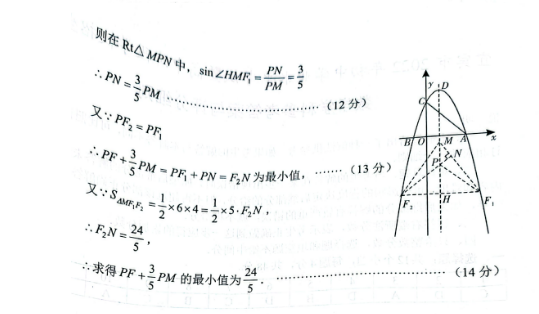 则在 Rt△ MPN 中，sin∠HMF₁ = PN/PM = 3/5
∴PN = 3/5 PM ……………………………（12 分）
又∵PF₂ = PF₁
∴PF + 3/5 PM = PF₁ + PN = F₂N 为最小值，……（13 分）
又∵S△MF₁F₂ = 1/2 × 6 × 4 = 1/2 × 5 · F₂N，
∴F₂N = 24/5，
∴求得 PF + 3/5 PM 的最小值为 24/5．……………………（14 分）
y D
C
B O A x
M
N
P
F₂ H F₁